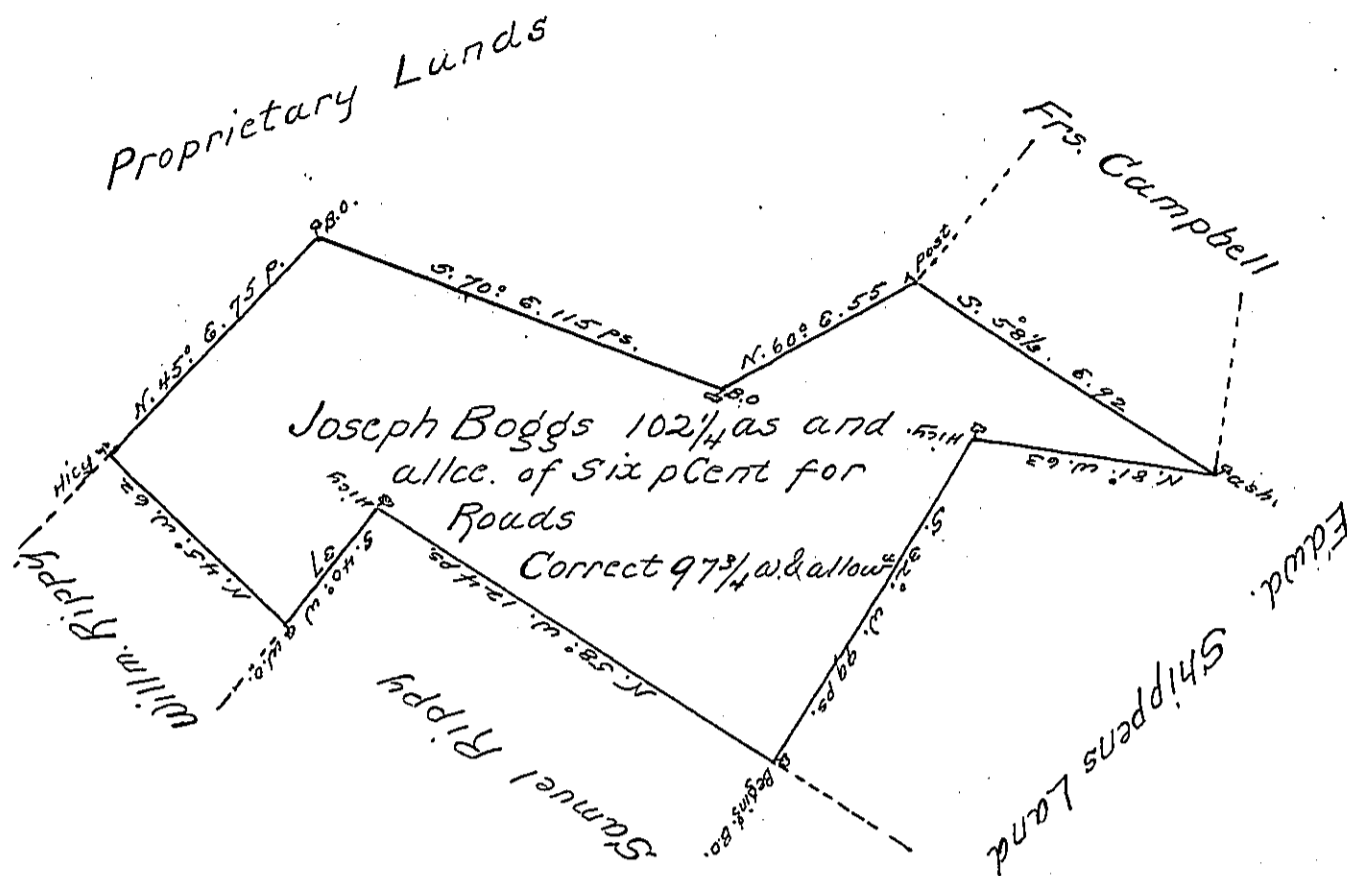 Proprietary Lands
Frs. Campbell
B.O.
N. 45° E. 75 P.
S. 70° E. 115 Ps.
N. 60° E. 55
post
S. 58½° E. 92
B.O
Hicy
Joseph Boggs 102¼ as and
allce. of Six pCent for
Roads
Correct 97¾ a. & allowce
Hicy.
N. 81° W. 63
ash.
N. 45° W. 62
Hicy
S. 40° W 37
W.O.
N. 58° W. 124 ps
S. 32° W. 99 ps.
Beging. B.O.
Willm. Rippy
Samuel Rippy
Edwd.
Shippens Land